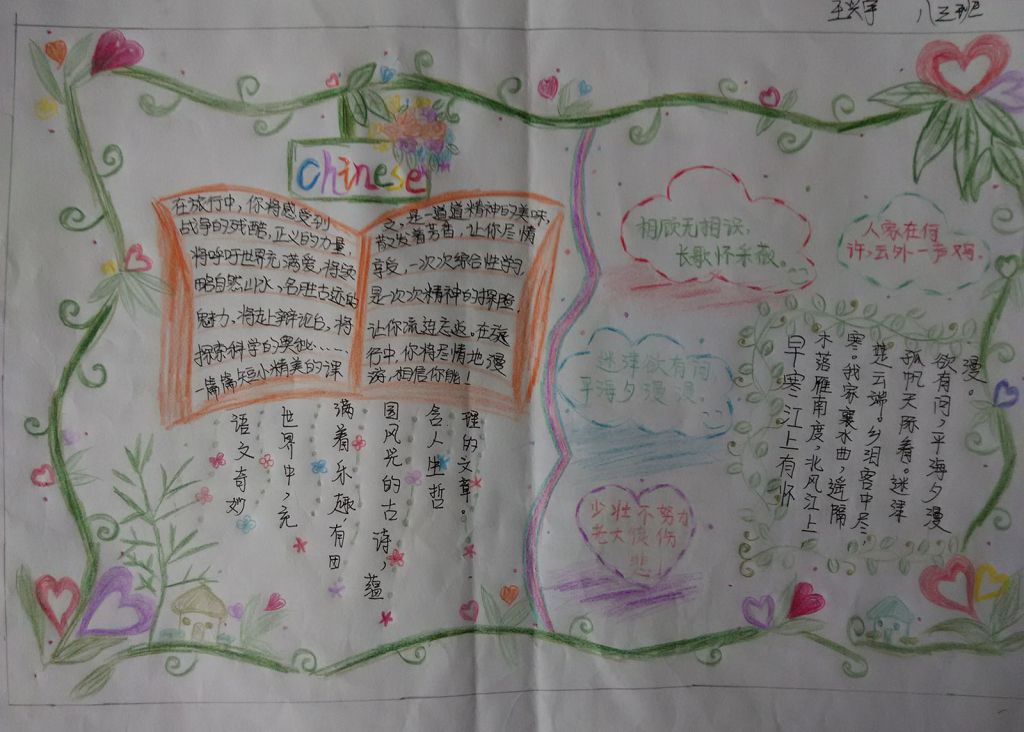 王兴宇 八三班
Chinese
在旅行中，你将感受到
战争的残酷，正义的力量，
将呼吁世界充满爱，将领
略自然山水，名胜古迹的
魅力，将赴辩论台，将
探索科学的奥秘……
篇篇短小精美的课
文，是一道道精神的美味，
散发着芳香，让你尽情
享受，一次次综合性学习
是一次次精神的探险，
让你流连忘返。在旅
行中，你将尽情地漫
游，相信你能！
语文奇妙
世界中，充
满着乐趣有田
园风光的古诗，蕴
含人生哲
理的文章。
相顾无相识，
长歌怀采薇。
人家在何
许，云外一声鸡。
迷津欲有问
平海夕漫漫。
少壮不努力
老大徒伤
悲！
早寒江上有怀
木落雁南度，北风江上
寒。我家襄水曲，遥隔
楚云端，乡泪客中尽，
孤帆天际看。迷津
欲有问，平海夕漫
漫。